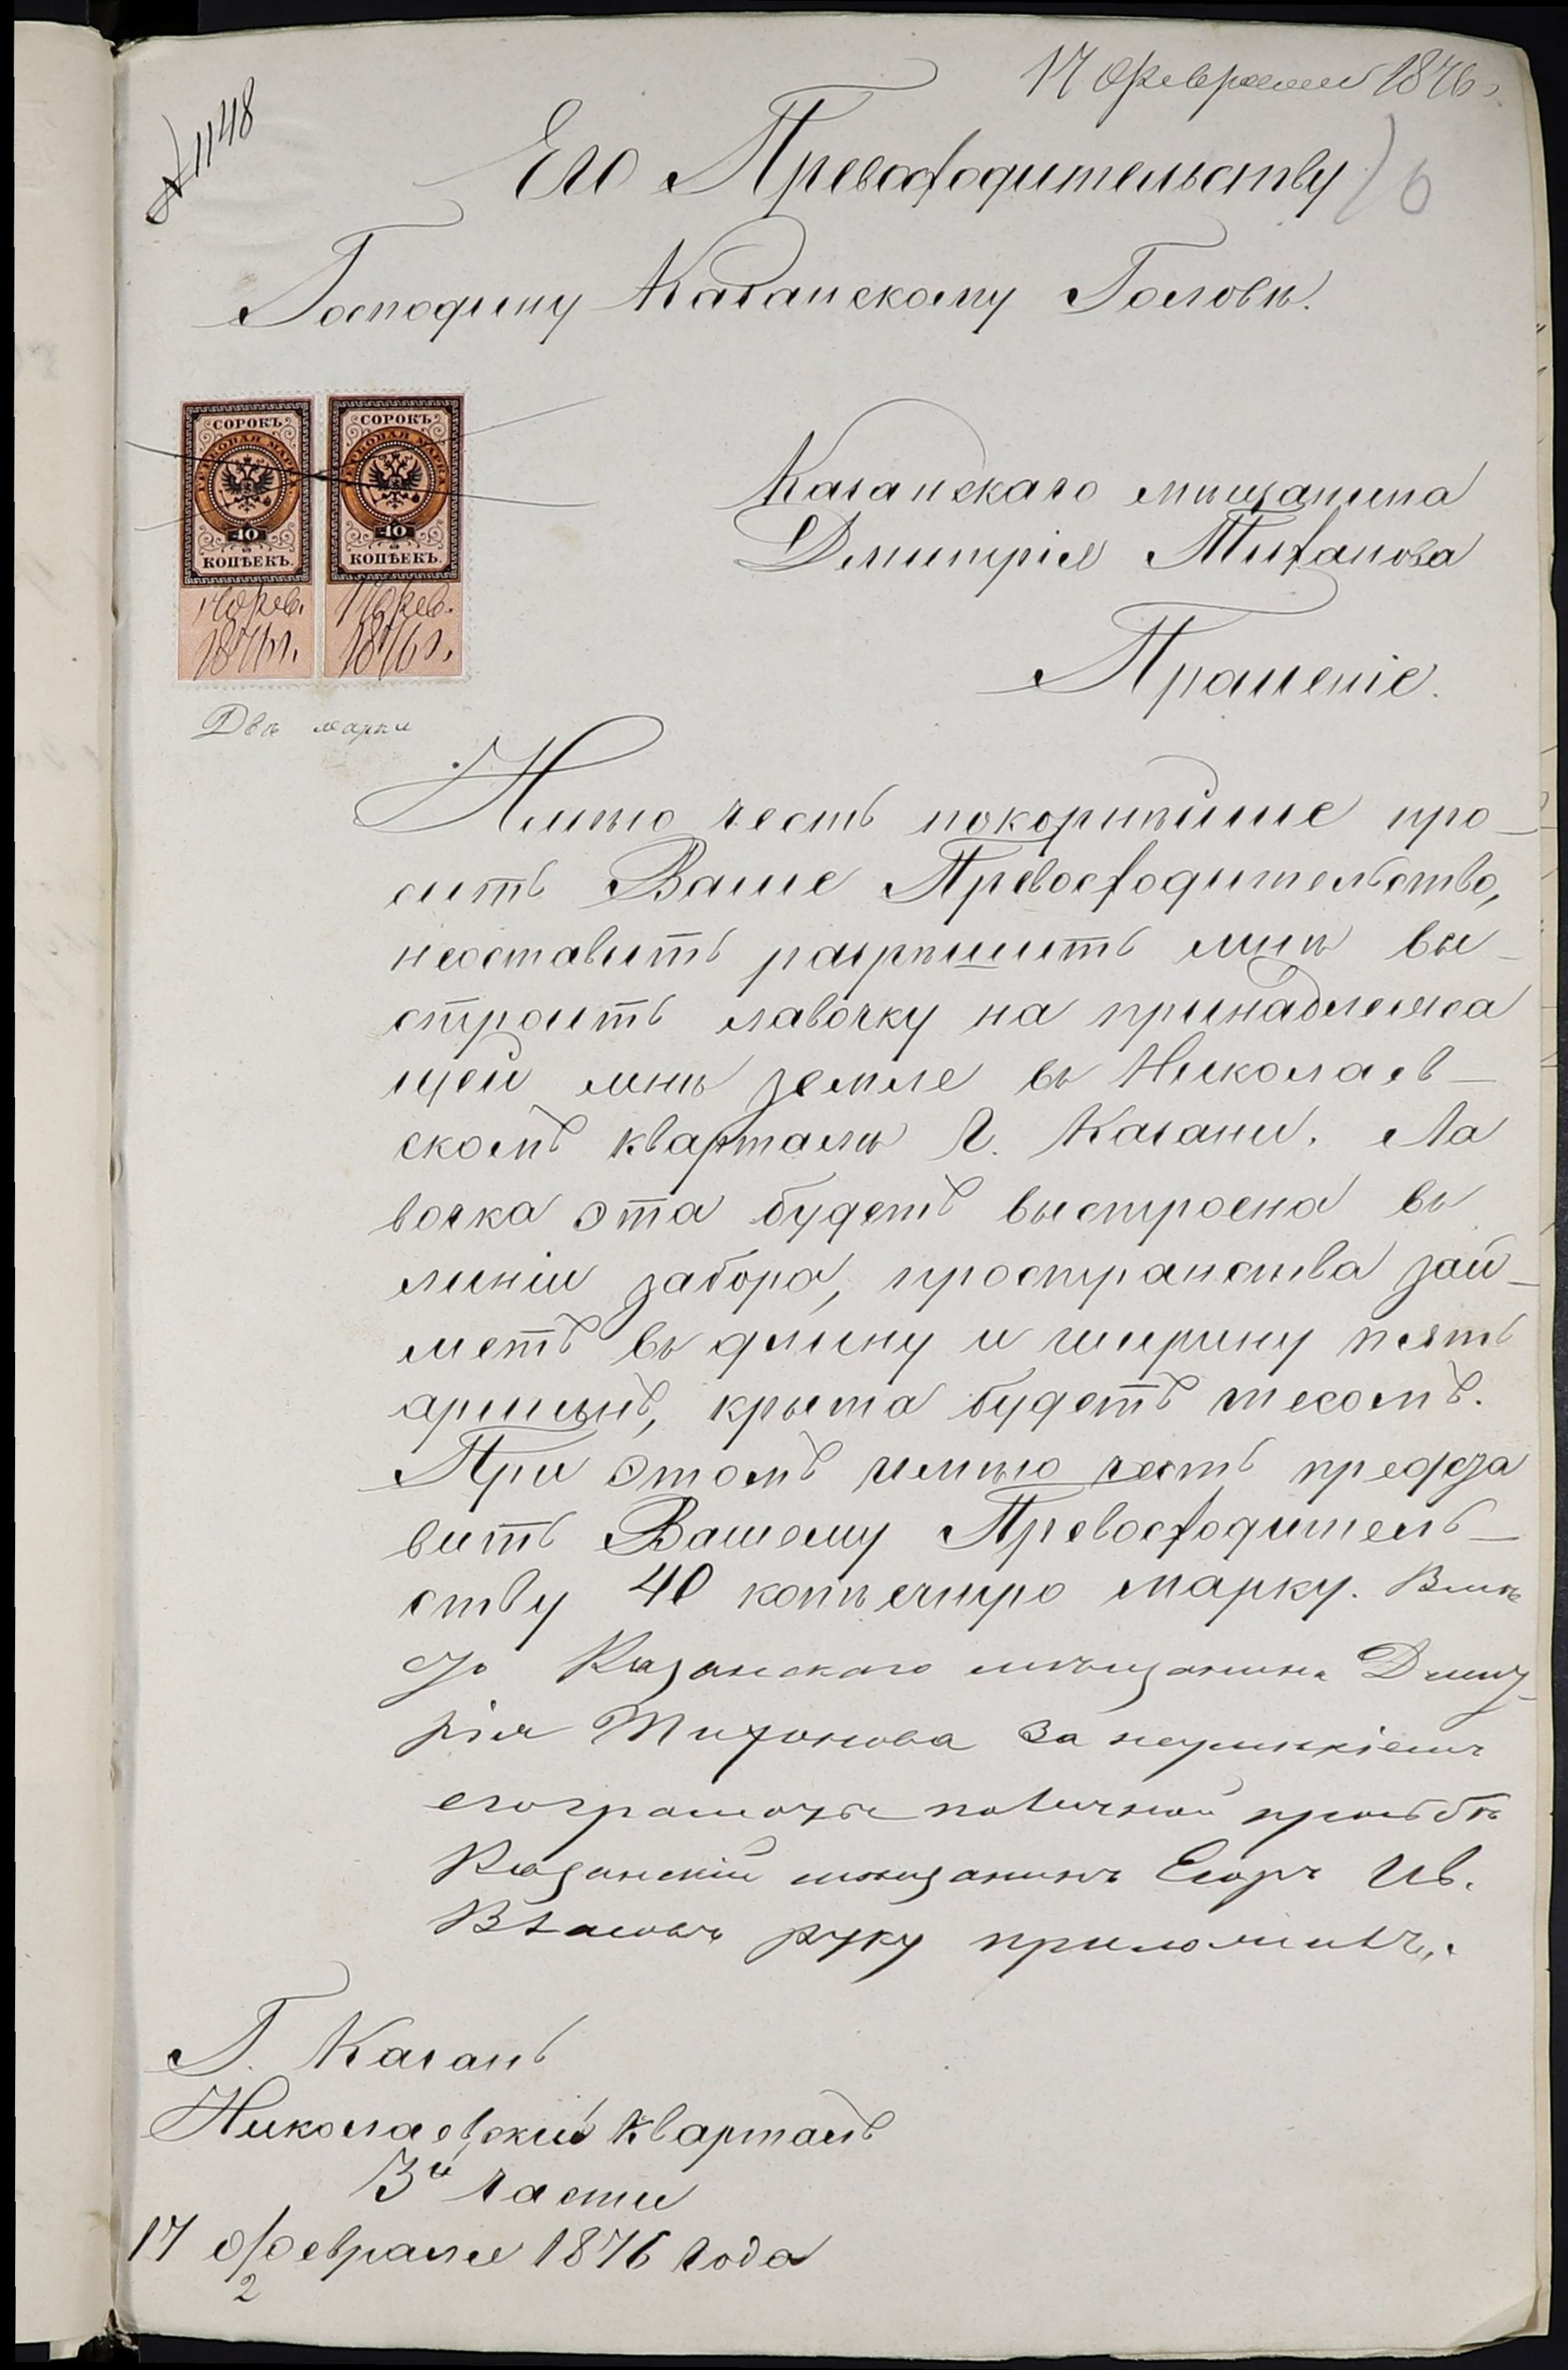 17 февраля 1876 г.
№ 1148
Его Превосходительству
6
Господину Казанскому Головѣ.
СОРОКЪ СОРОКЪ
ГЕРБОВАЯ МАРКА ГЕРБОВАЯ МАРКА
40 40
КОПѢЕКЪ. КОПѢЕКЪ.
17 фев. 17 фев.
1876 г. 1876 г.
Двѣ марки
Казанскаго мѣщанина
Дмитрія Тиханова
Прошеніе.
Имѣю честь покорнѣйше про-
сить Ваше Превосходительство,
неоставить разрѣшить мнѣ вы-
строить лавочку на принадлежа
щей мнѣ земле въ Николаев-
скомъ кварталѣ г. Казани. Ла
вочка эта будетъ выстроена въ
линіи забора, пространства зай-
метъ въ длину и ширину пять
аршинъ, крыта будетъ тесомъ.
При этомъ имѣю честь предста
вить Вашему Превосходитель-
ству 40 копѣечную марку. Вмѣ
сто Казанскаго мѣщанина Дмит-
рія Тихонова за неумѣніемъ
его грамоты поличной прозьбѣ
Казанскій мѣщанинъ Егоръ Ив.
Власовъ руку приложилъ.
Г. Казань
Николаевскій кварталъ
3й части
17 февраля 1876 года
2